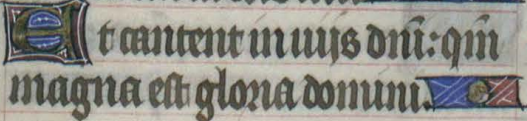 Et cantent in uijs dnĩ: qm̃
magna est gloria domini.